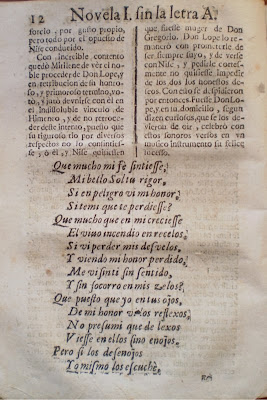 12 Novela I. sin la letra A.
forçio, por gusto propio,
pero todo por el opuesto de
Nise conducido.
Con increible contento
quedò Misseno de ver el no-
ble proceder de Don Lope, y
en retribucion de tu honro-
so, y primoroso termino, vo-
tò, y juró de vnirse con el en
el indissoluble vinculo de
Himeneo, y de no retroce-
der deste intento, puesto que
su riguroso tio por diversos
respectos no lo continties-
se, ò el, y Nise quisiessen
que fuesse muger de Don
Gregorio. Don Lope lo re-
munerò con prometerle de
ser siempre suyo, y de verse
con el, y pedirle cortès-
mente no quisiesse impedir
de los dos los honestos des-
seos. Con esto se dispidieron
por entonces. Fuese Don Lo-
pe, y en su domicilio, segun
dizen curiosos, que se los di-
xeron de oir, celebrò con
estos sonoros versos en vn
musico instrumento su felice
sucesso.
Que mucho mi fè sintiesse,
Mi bello Sol tu rigor,
Si en peligro vi mi honor,
Si temi que te perdiesse?
Que mucho que en mi creciesse
El viuo incendio en recelos,
Si vi perder mis desvelos,
Y viendo mi honor perdido,
Me vi sin ti sin sentido,
Y sin socorro en mis zelos?
Que puesto que yo en tus ojos,
De mi honor vi los reflexos,
No presumi que de lexos
Viesse en ellos sino enojos.
Pero si los desenojos
Yo mismo los escuchè,